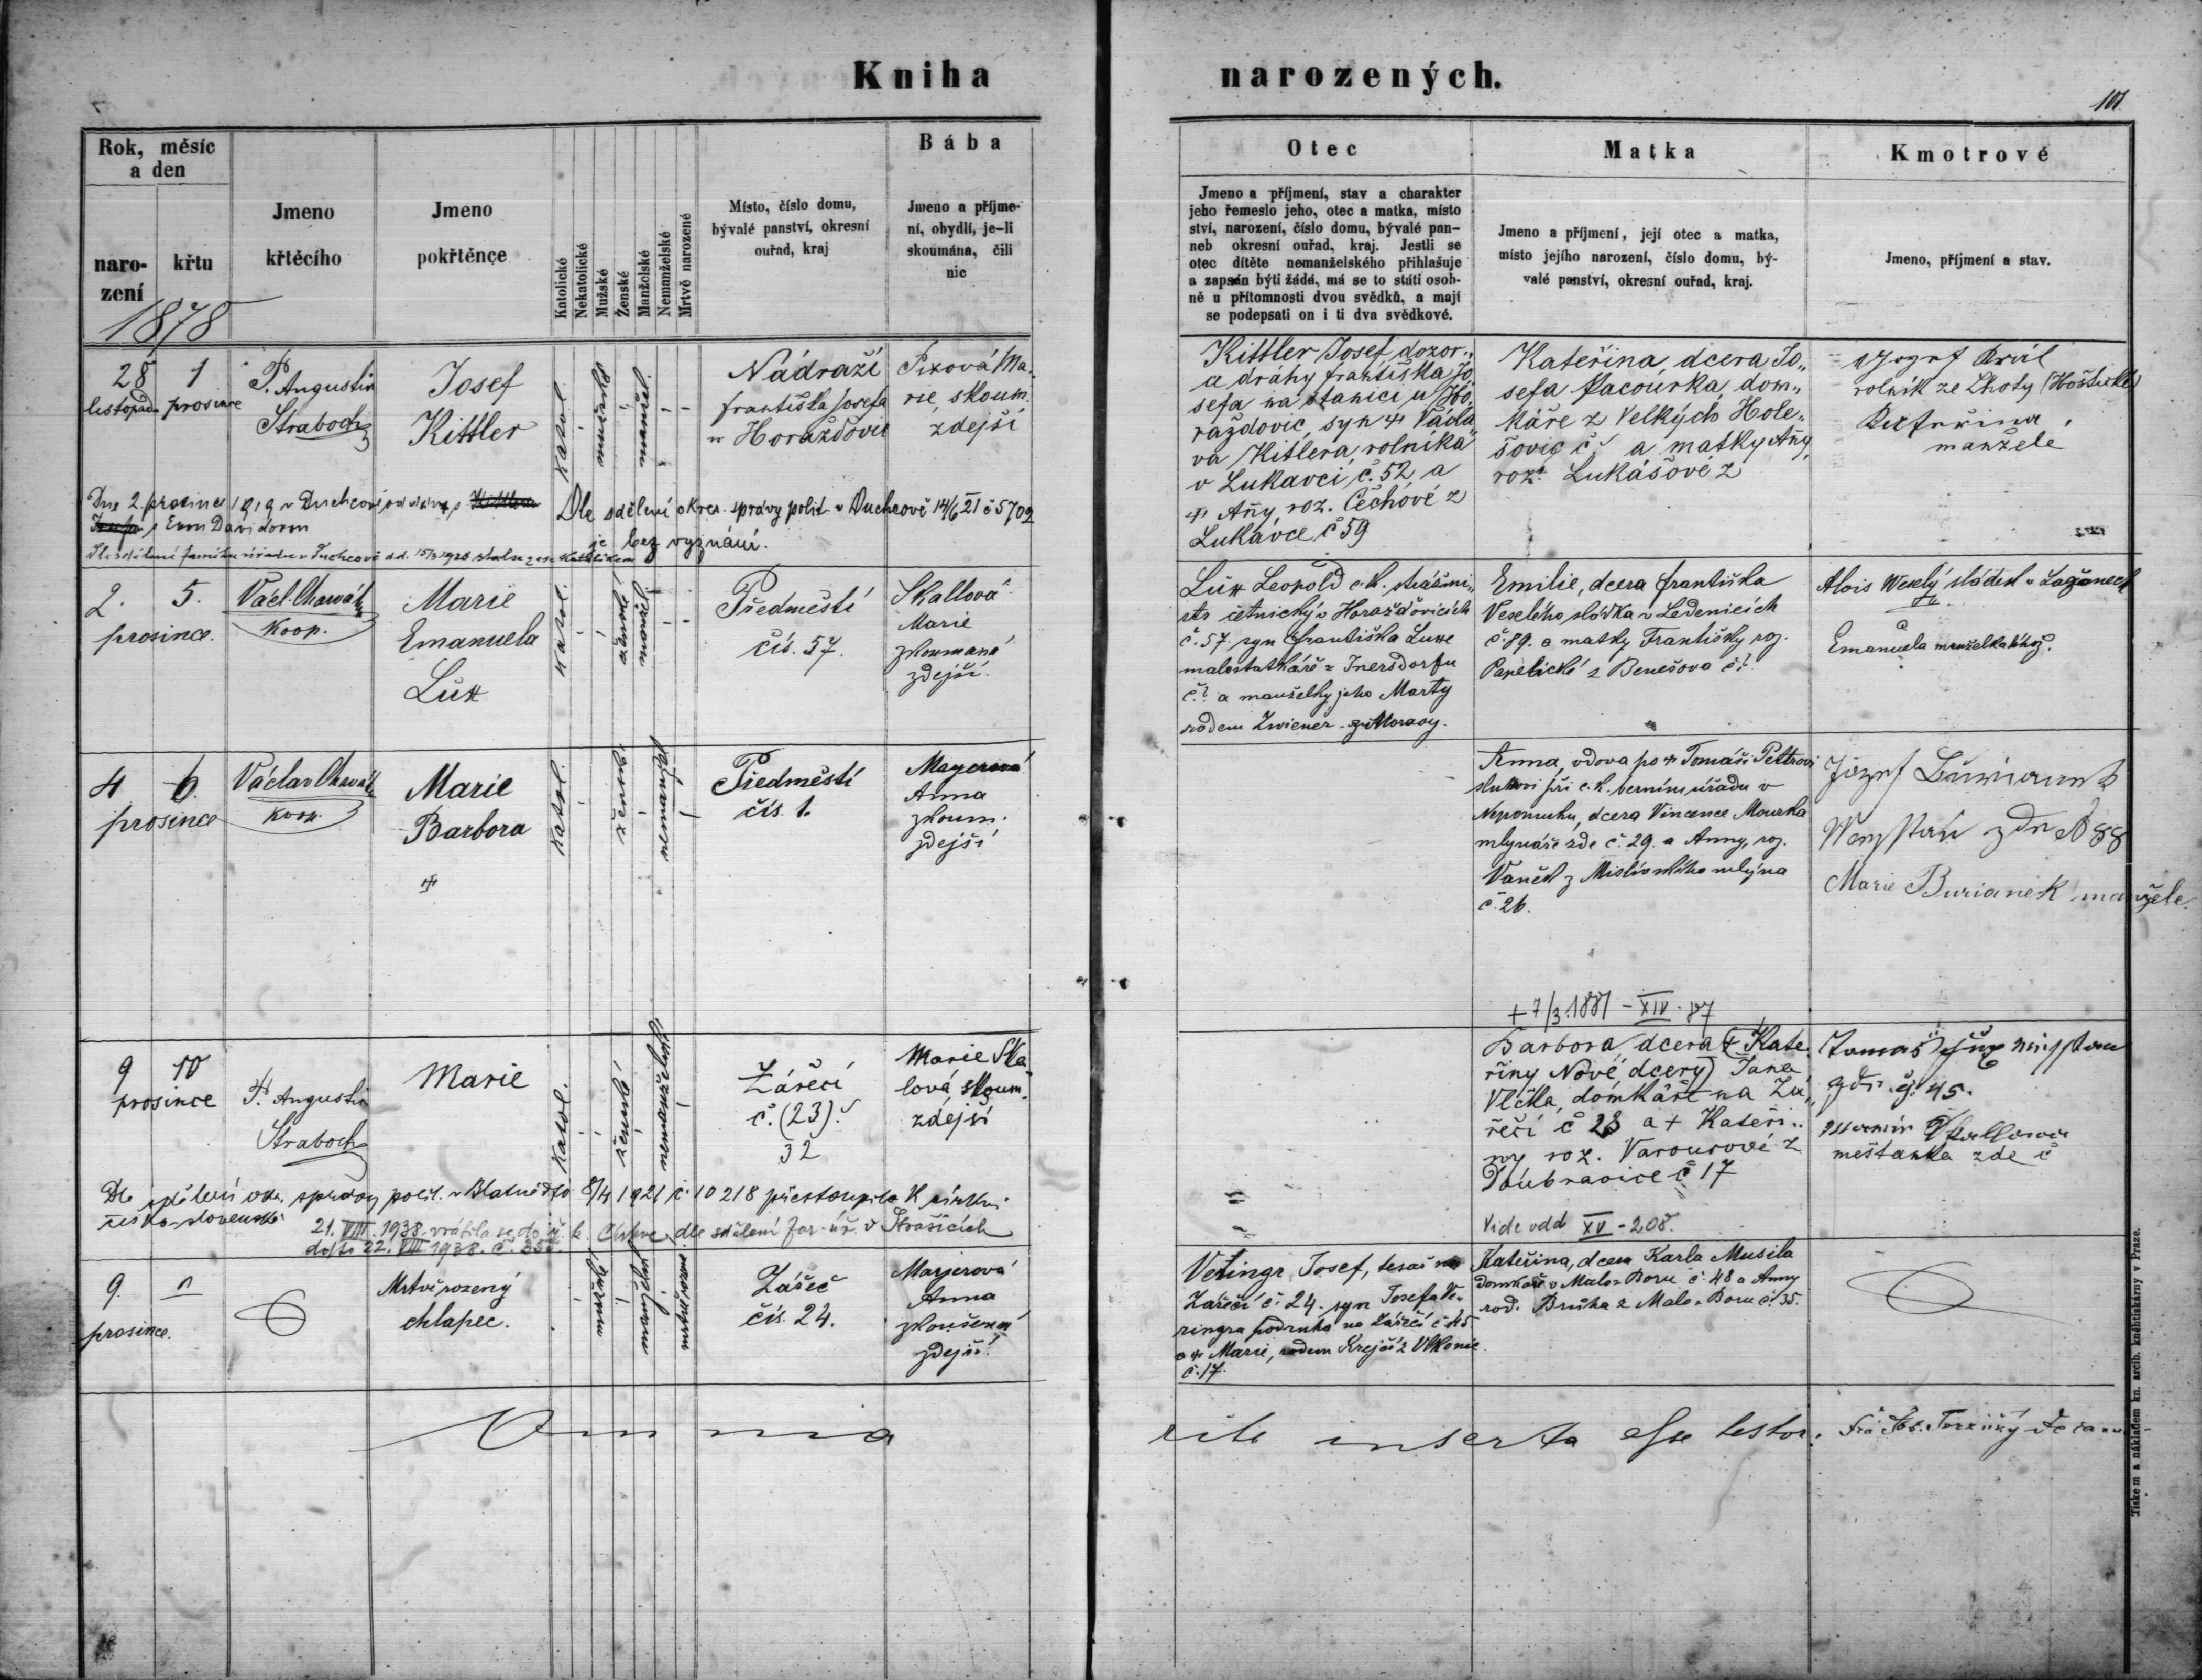 Kniha narozených.
101
Rok, měsíc a den
narození
křtu
Jmeno křtěcího
Jmeno pokřtěnce
Katolické
Nekatolické
Mužské
Ženské
Manželské
Nemanželské
Mrtvě narozené
Místo, číslo domu,
bývalé panství, okresní
ouřad, kraj
Bába
Jmeno a příjme-
ní, obydlí, je-li
skoumána, čili
nic
Otec
Jmeno a příjmení, stav a charakter
jeho řemeslo jeho, otec a matka, místo
ství, narození, číslo domu, bývalé pan-
neb okresní ouřad, kraj. Jestli se
otec dítěte nemanželského přihlašuje
a zapsán býti žádá, má se to státi osob-
ně u přítomnosti dvou svědků, a mají
se podepsati on i ti dva svědkové.
Matka
Jmeno a příjmení, její otec a matka,
místo jejího narození, číslo domu, bý-
valé panství, okresní ouřad, kraj.
Kmotrové
Jmeno, příjmení a stav.
1878
28 listopadu
1 prosince
P. Augustin
Straboch
Josef
Kittler
katol.
mužské
manžel.
Nádraží
františka Josefa
u Horažďovic
Pixová Ma-
rie, skoum.
zdejší
Kittler Josef, dozor„
a dráhy františka Jo„
sefa na stanici u Ho„
ražďovic, syn † Václa„
va Kitlera, rolníka
v Lukavci č. 52, a
† Añy roz. Čechové z
Lukavce č 59
Kateřina, dcera Jo„
sefa Pacourka, dom„
káře z Velkých Hole„
šovic č. a matky Añy,
roz. Lukášové z
Josef Král
rolník ze Lhoty (Hoštické)
Kateřina
manželé
Dne 2. prosince 1919 v Duchcově
s Evou Davidovou
Dle sdělení okres. správy polit. v Duchcově 14/6 21 č 5702
je bez vyznání.
2. prosince.
5.
Václ. Charvát
Koop.
Marie
Emanuela
Lux
katol.
ženské
manžel.
Předměstí
čís. 57.
Skallová
Marie
zkoumaná
zdejší.
Lux Leopold c. k. strážmi„
str četnický v Horažďovicích
č. 57. syn Františka Luxe
malostatkáře z Inersdorfu
č.? a manželky jeho Marty
rodem Zwiener z Moravy.
Emilie, dcera Františka
Veselého, sládka v Ledenicích
č. 89. a matky Františky roz.
z Benešova č.?
Alois Weselý sládek v Lažanech
a
Emanuela manželka téhož.
4 prosince
6.
Václav Charvát
Koop.
Marie
Barbora
†
katol.
ženské
nemanžel.
Předměstí
čís. 1.
Mayerová
Anna
zkoum.
zdejší
Anna, vdova po † Tomáši Pettrovi
sluhovi při c. k. berním úřadu v
Nepomuku, dcera Vincence Mourka
mlynáře zde č. 29. a Anny, roz.
Vaněk z mlýna
č. 26.
zde č 88
Marie Burianek manžele.
+ 7/3.1881 - XIV. 87
9 prosince
10
P. Augustin
Straboch
Marie
katol.
ženské
nemanželské
Zářečí
č. (23).
32
Marie Ska
lová skoum.
zdejší
Barbora, dcera († Kate
řiny Nové, dcery) Jana
Vlčka, domkáře na Zá„
řečí č 23 a † Kateři„
ny roz. Varourové z
Doubravice č 17
Vide odd XV - 208.
zde č. 45.
Skallova
měštanka zde č
Dle sdělení okr. správy polit. v Blatné dto 8/4 1921 č. 10218 přestoupila k církvi
československé
21. VIII. 1938. vrátila se do ř. k. Církve dle sdělení far. úř. v Strašicích
ddto 22. VIII 1938. č. 355.
9. prosince.
Mrtvě rozený
chlapec.
mužské
manželský
mrtvěrozené
Zářeč
čís. 24.
Marjerová
Anna
zkoušená
zdejší.
Vetingr Josef, tesař na
Zářečí č. 24. syn Josefa Ve„
tingra podruha na Zářečí č 45
a † Marie, rodem Krejčí z Vlkonic
č. 17.
Kateřina, dcera Karla Musila
domkáře v Malo. Boru č. 48 a Anny
rod. Bruha z Malo. Boru č. 35.
Omnia rite inserta esse testor:
Tiskem a nákladem kn. arcib. knihtiskárny v Praze.